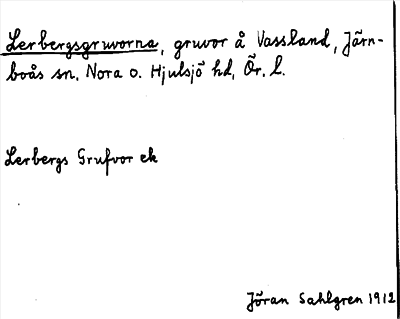 Lerbergsgruvorna, gruvor å Vassland, Järn-
boås sn. Nora o. Hjulsjö hd, Ör. l.
Lerbergs Grufvor ek
Jöran Sahlgren 1912